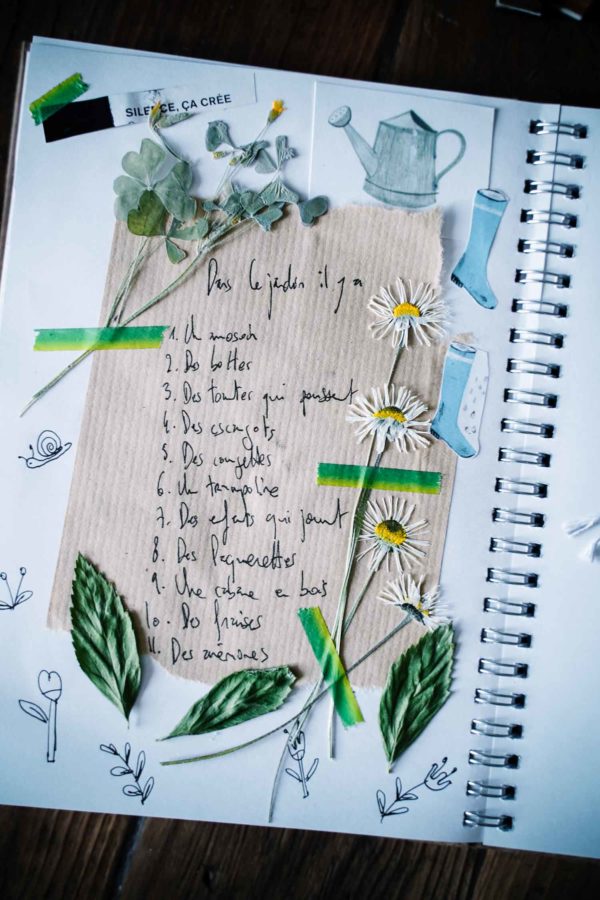 SILENCE, ÇA CRÉE
Dans le jardin il y a
1. Un
2. Des bottes
3. Des tomates qui poussent
4. Des escargots
5. Des courgettes
6. Un trampoline
7. Des enfants qui jouent
8. Des Paquerettes
9. Une cabane en bois
10. Des fraises
11. Des anémones